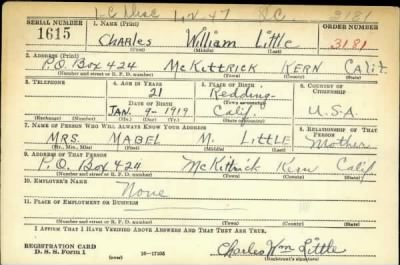 I-C Disc
SERIAL NUMBER 1. NAME (Print) ORDER NUMBER
1615 Charles William Little 3181
(First) (Middle) (Last)
2. ADDRESS (Print)
P.O. Box 424 McKittrick Kern Calif.
(Number and street or R. F. D. number) (Town) (County) (State)
3. TELEPHONE 4. AGE IN YEARS 5. PLACE OF BIRTH 6. COUNTRY OF CITIZENSHIP
21 Redding
DATE OF BIRTH (Town or county)
JAN. 9-1919 Calif. U.S.A.
(Mo.) (Day) (Yr.) (State or country)
7. NAME OF PERSON WHO WILL ALWAYS KNOW YOUR ADDRESS 8. RELATIONSHIP OF THAT PERSON
MRS. MABEL M. LITTLE Mother
(Mr., Mrs., Miss) (First) (Middle) (Last)
9. ADDRESS OF THAT PERSON
P.O. Box 424 McKittrick Kern Calif
(Number and street or R. F. D. number) (Town) (County) (State)
10. EMPLOYER'S NAME
None
11. PLACE OF EMPLOYMENT OR BUSINESS
(Number and street or R. F. D. number) (Town) (County) (State)
I AFFIRM THAT I HAVE VERIFIED ABOVE ANSWERS AND THAT THEY ARE TRUE.
REGISTRATION CARD
D. S. S. Form 1 (over) 16-17105 Charles Wm Little
(Registrant's signature)